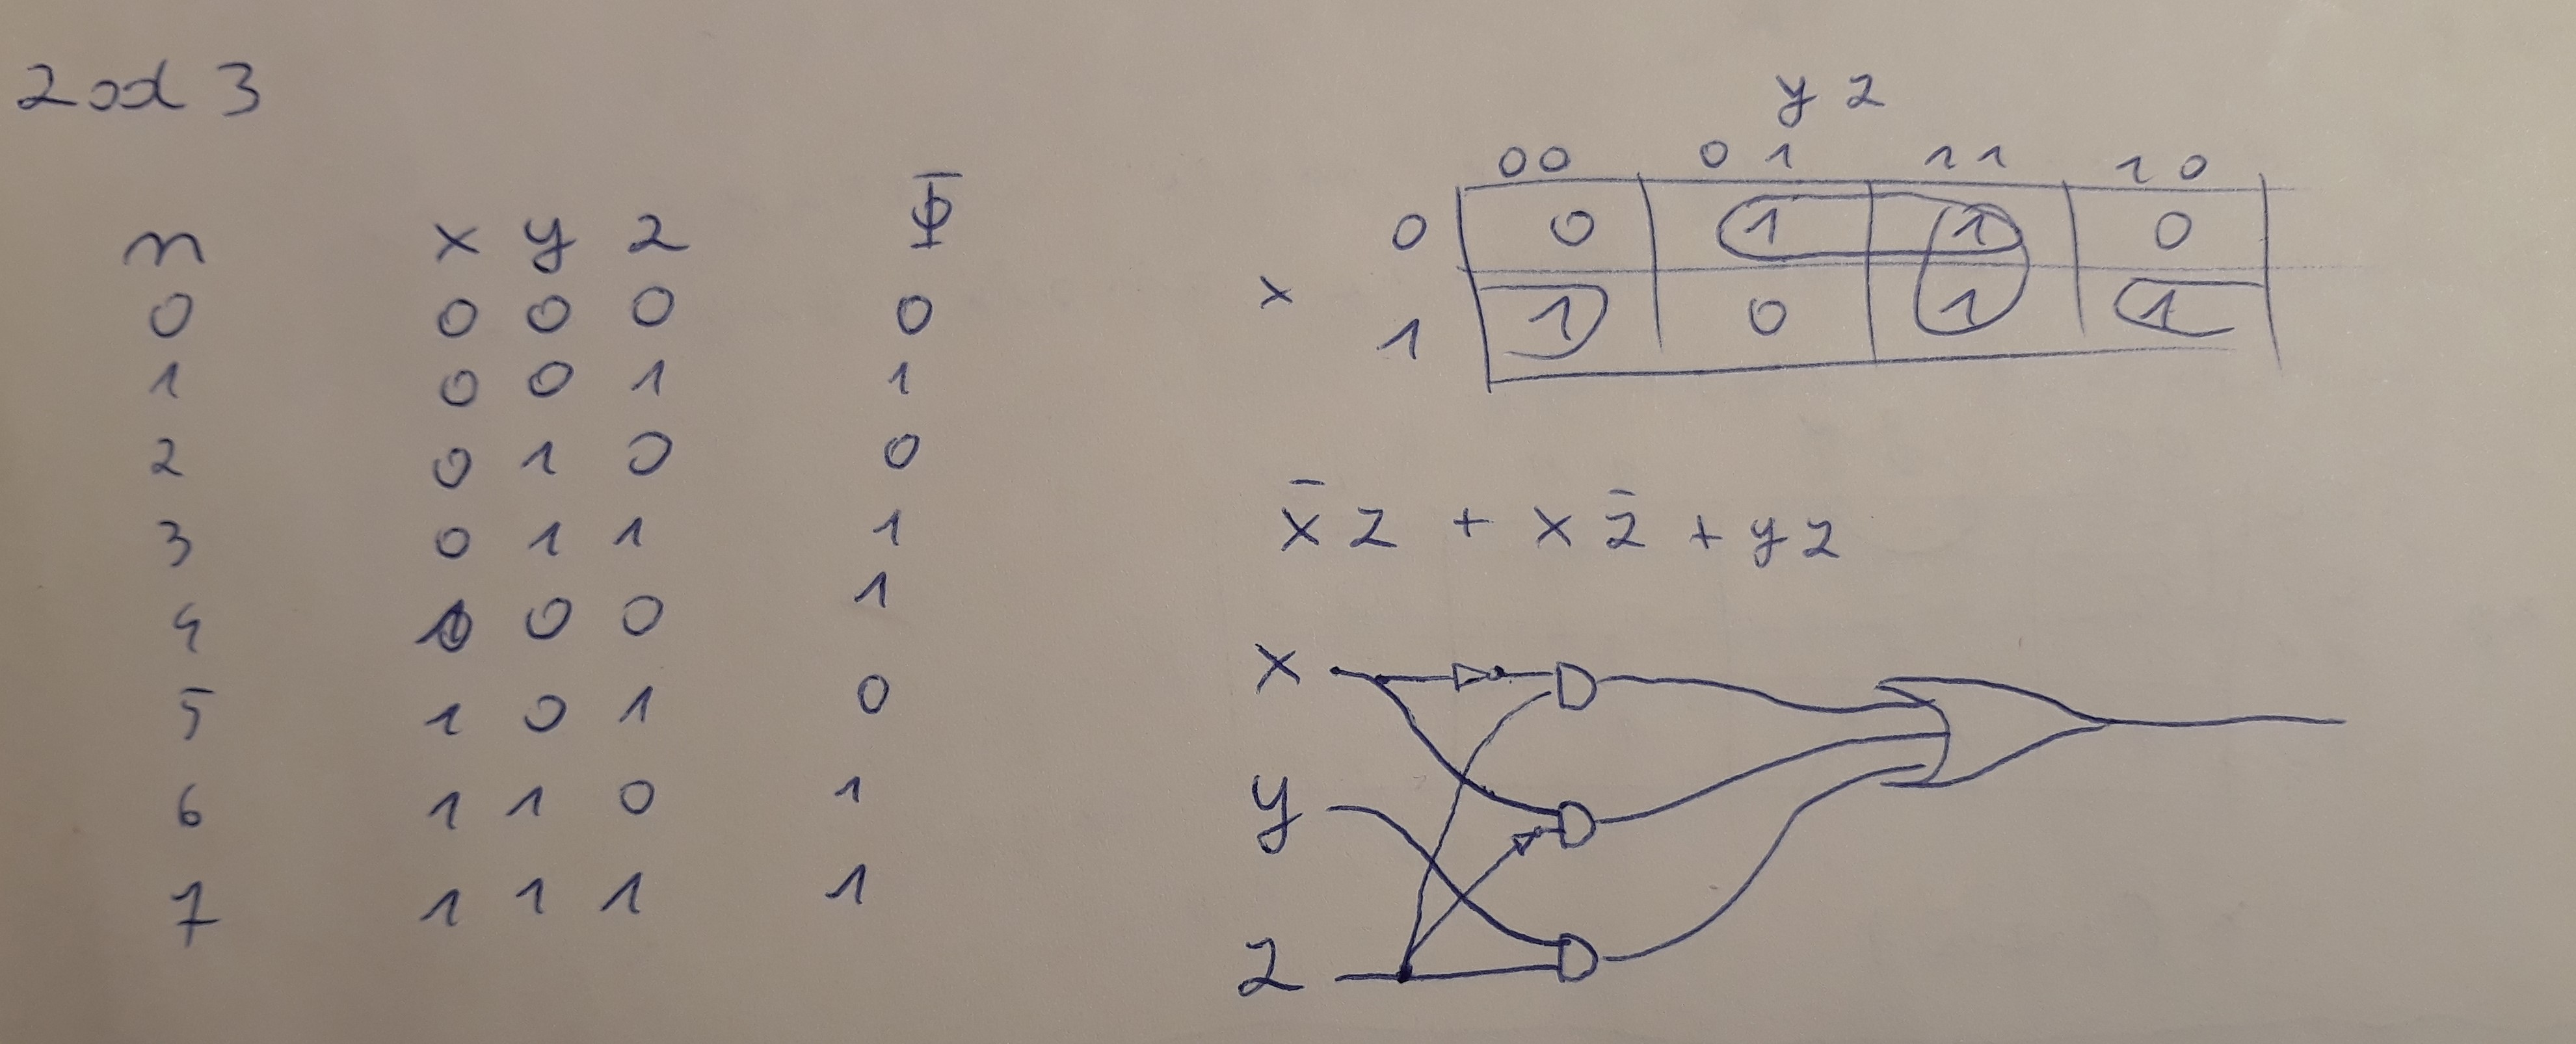 Zad 3
n x y z Φ̅
0 0 0 0 0
1 0 0 1 1
2 0 1 0 0
3 0 1 1 1
4 1 0 0 1
5 1 0 1 0
6 1 1 0 1
7 1 1 1 1
y z
00 01 11 10
0 0 1 1 0
x
1 1 0 1 1
x̄ z + x z̄ + y z
x
y
z